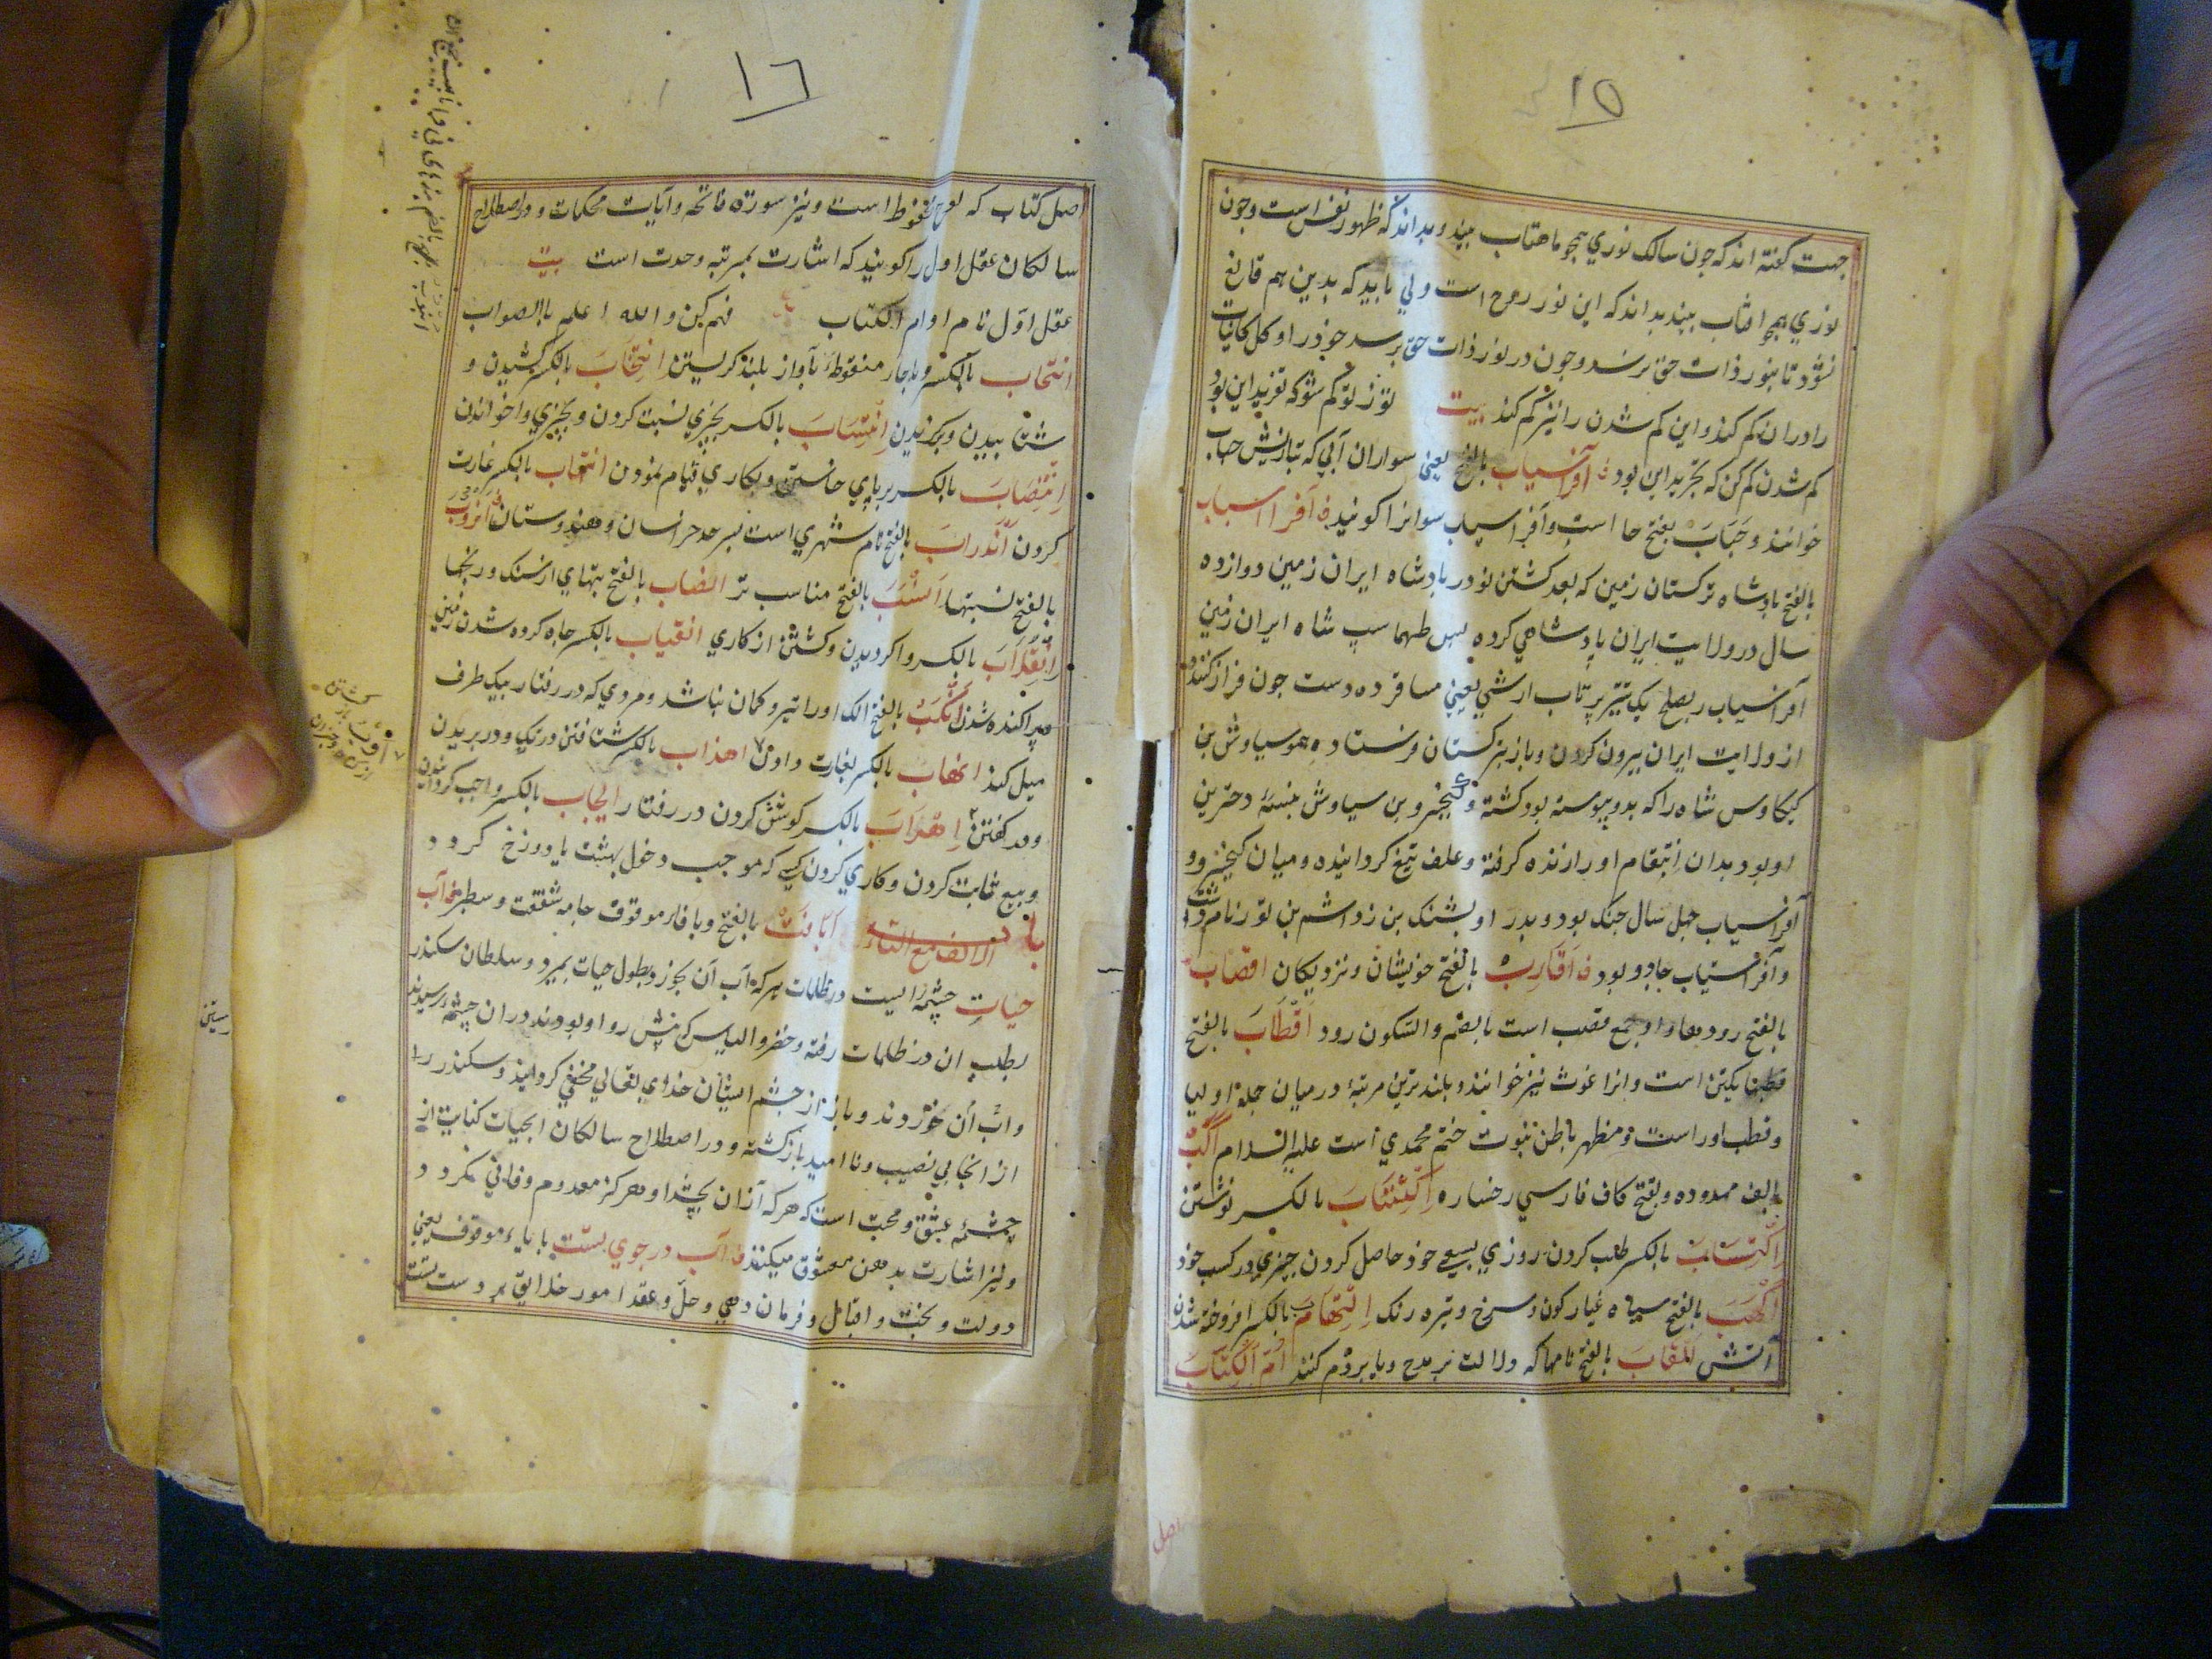 ١٥
جهت گفته اند كه جون سالك نوري همجو ماهتاب بيند و بداند كه ظهور نفس است وجون
نوري همجو افتاب بيند بداند كه اين نور روح است ولي بايد كه بدين هم قانع
نشود تا بنور ذات حق برسد وجون در نور ذات حق برسد خود را و كل كاينات
را دران كم كند و اين كم شدن را نيز كم كند بيت تو ز تو كم شو كه تفريد اين بود
كم شدن كم كن كه تجريد اين بود آفراسياب بالفتح يعني سواران آبي كه تبازيش حباب
خوانند وحباب بفتح حا است وافراسياب سوانرا كويند افراسياب
بالفتح بادشاه تركستان زمين كه بعد كشتن نودر بادشاه ايران زمين دوازده
سال در ولايت ايران پادشاهي كرده پس طهماسب شاه ايران زمين
افراسياب بصلح يك تير پرتاب ارشي يعني مسافر ده دست جون فراز كنند
از ولايت ايران بيرون كردن وباز بتركستان فرستاده همو سياوش بن
كيكاوس شاه را كه بدو پيوسته بود كشته وكيخسرو بن سياوش نبسهٔ دخترين
او بود بدان انتقام او را زنده كرفته وعلف تيغ كردانيده وميان كيخسرو و
آفراسياب جهل سال جنك بود وپدر او پشنك بن زواشم بن تور نام داشت
وآفراسياب جادو بود اقارب بالفتح خويشان ونزديكان اقصاب
بالفتح رودها واو جمع قصب است بالضم والسكون رود اقطاب بالفتح
قطبها يكتن است وانرا غوث نيز خوانند وبلندترين مرتبهٔ درميان جملهٔ اوليا
وقطب اوراست ومظهر باطن نبوت ختم محمدي است عليه السلام آكب
بالف ممدوده وبفتح كاف فارسي رخساره اكتتاب بالكسر نوشتن
اكتساب بالكسر طلب كردن روزي بسعي خود حاصل كردن چيزي در كسب خود
اكهب بالفتح سياه غبار كون وسرخ وتيره رنك التهاب بالكسر افروخته شدن
آتش القاب بالفتح نامها كه دلالت بر مدح ويا بر ذم كنند ام الكتاب
اصل
١٦
اصل كتاب كه لوح محفوظ است ونيز سورة فاتحه وآيات محكمات ودر اصطلاح
سالكان عقل اول را كويند كه اشارت بمرتبه وحدت است بيت
عقل اول نام او ام الكتاب فهم كن والله اعلم بالصواب
انتحاب بالكسر وباحاء منقوطه بآواز بلند كريستن انتخاب بالكسر كشيدن و
شتابيدن وبركزيدن انتساب بالكسر بچيزي نسبت كردن وبچيزي واخواندن
انتصاب بالكسر برپاي خاستن وبكاري قيام نمودن انتهاب بالكسر غارت
كردن اندراب بالفتح نام شهري است بسرحد خراسان وهندوستان
بالفتح نسبتها انسب بالفتح مناسب تر انصاب بالفتح بتهاي از سنك ورنجها
انقلاب بالكسر واكرديدن وكشتن از كاري انقياب بالكسر جاه كرده شدن زمين
وپراكنده شدن انكب بالفتح انك او را تير وكمان نباشد ومردي كه در رفتار بيك طرف
ميل كند انهاب بالكسر بغارت دادن اهذاب بالكسر شتافتن در تك ودر بريدن
ودر كفتن اهراب بالكسر كوشش كردن در رفتار ايجاب بالكسر واجب كردانيدن
وبيع ثابت كردن وكاري كردن كسي كه موجب دخول بهشت يا دوزخ كردد
باب الالف مع التاء ابافت بالفتح وبا فاء موقوف جامه شفقت وسطبر آب
حيات چشمهٔ ايست در ظلمات هركه آب آن بخورد بطول حيات بميرد وسلطان سكندر
بطلب ان در ظلمات رفته وخضر والياس كه پيش رو او بودند دران چشمه رسيدند
واب آن خوردند وباز از چشم ايشان خداي تعالي مخفي كردانيد وسكندر را
از انجا بي نصيب ونااميد بازكشته ودر اصطلاح سالكان ابحيات كنايت از
چشمهٔ عشق ومحبت است كه هركه آزان بچشد او هركز معدوم وفاني نكردد
ونيز اشارت بدهن معشوق ميكنند آب در جوي بست با ياء موقوف يعني
دولت وبخت واقبال وفرمان دهي وحل وعقد امور خلايق بر دست تست